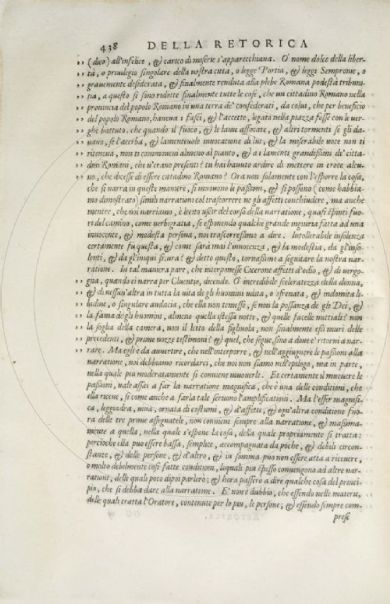 438 DELLA RETORICA
,, (dico) all'infelice, & carico di miserie s'apparecchiana. O nome dolce della liber-
,, tà, o privilegio singolare della nostra città, o legge Portia, & leggi Sempronie, o
,, gravemente desiderata, & finalmente renduta alla plebe Romana podestà tribuni-
,, tia, a questo si sono ridotte finalmente tutte le cose, che un cittadino Romano nella
,, provincia del popolo Romano in una terra de' confederati, da colui, che per beneficio
,, del popolo Romano, haueua i fasci, & l'accette, legato nella piazza fusse con le ver-
,, ghe battuto. che quando il fuoco, & le lame affocate, & altri tormenti se gli da-
,, uano, se l'acerba, & lamenteuole inuocatione di lui, & la miserabile uoce non ti
,, riteneua, non ti commoueua almeno al pianto, & a i lamenti grandissimi de' citta-
,, dini Romani, che u'erano presenti? tu hai hauuto ardire di mettere in croce alcu-
,, no, che dicesse di essere cittadino Romano? Ora non solamente con l'esporre la cosa,
che si narra in queste maniere, si muouono le passioni, & si possono (come habbia-
mo demostrato) simili narrationi col trascorrere ne gli affetti conchiudere, ma anche
mentre, che noi narriamo, è lecito uscir del corso della narratione, quasi spinti fuo-
ri del camino, come uerbigratia, se esponendo qualche grande ingiuria fatta ad una
innocente, & modesta persona, noi trascorressimo a dire. Intollerabile insolenza
certamente fu questa, & come sarà mai l'innocenza, & la modestia, da gl'inso-
lenti, & da gl'iniqui sicura? & detto questo, tornassimo a seguitare la nostra nar-
ratione. In tal maniera pare, che interponesse Cicerone affetti d'odio, & di uergo-
,, gna, quando ei narra per Cluentio, dicendo. O incredibile sceleratezza della donna,
,, & di nessun'altra in tutta la uita de gli huomini udita, o sfrenata, & indomita li-
,, bidine, o singulare audacia, che ella non temesse, se non la possanza de gli Dei, &
,, la fama de gli huomini, almeno quella istessa notte, & quelle facelle nuttiali? non
,, la soglia della camera, non il letto della figliuola, non finalmente essi muri delle
,, precedenti, & prime nozze testimoni? & quel, che segue, sino a doue e' ritorni a nar-
rare. Ma egli è da auuertire, che nell'interporre, & nell'aggiugnere le passioni alla
narratione, noi debbiamo ricordarci, che noi non siamo nell'epilogo, ma in parte,
nella quale più moderatamente si conuiene muouerle. Et certamente il muouere le
passioni, uale assai a far la narratione magnifica, che è una delle conditioni, che
ella riceue, si come anche a farla tale seruono l'amplificationi. Ma l'esser magnifi-
ca, leggiadra, uiua, ornata di costumi, & d'affetti, & ogn'altra conditione fuo-
ra delle tre prime assegnatele, non conuiene sempre alla narratione, & massima-
mente a quella, nella quale s'espone la cosa, della quale propriamente si tratta:
percioche ella può essere bassa, semplice, accompagnata da poche, & debili circon-
stanze, & delle persone, & d'altro, & in somma può non essere atta a riceuere,
o molto debolmente così fatte conditioni, lequali più spesso conuengono ad altre nar-
rationi, delle quali poco dipoi parlerò; & hora passero a dire qualche cosa del princi-
pio, che si debba dare alla narratione. E' non è dubbio, che essendo nelle materie,
delle quali tratta l'Oratore, contenute per lo più, le persone; & essendo sempre com-
prese